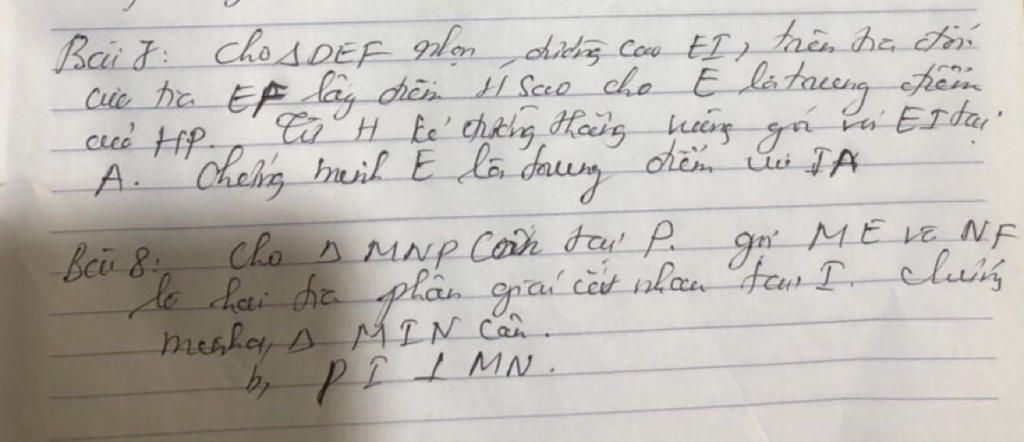 Bài 7: Cho Δ DEF nhọn, đường cao EI, trên tia đối
của tia EF lấy điểm H sao cho E là trung điểm
của HF. Từ H kẻ đường thẳng vuông góc với EI tại
A. Chứng minh E là trung điểm của IA
Bài 8: Cho Δ MNP Cân tại P. gọi ME và NF
là hai tia phân giác cắt nhau tại I. Chứng
minh a, Δ MIN cân.
b, PI ⊥ MN.